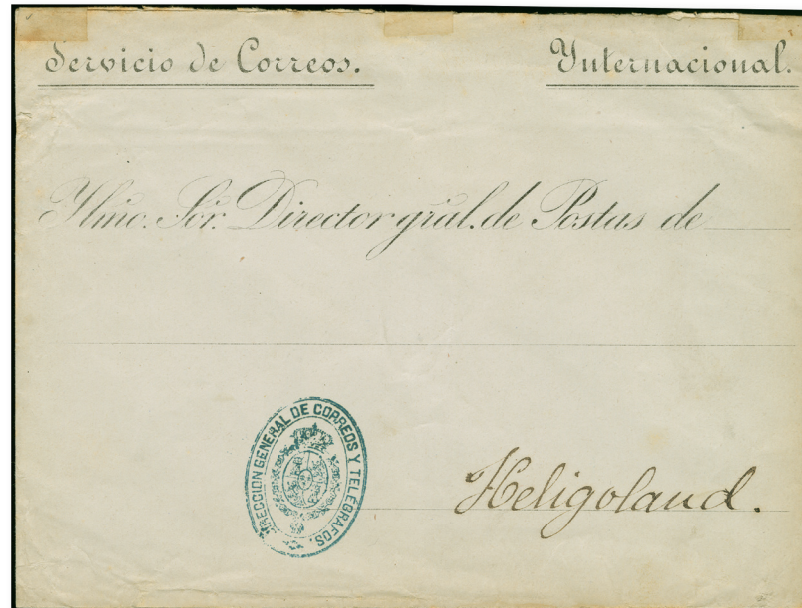 Servicio de Correos. Internacional.
Ylmo. Sor. Director gral. de Postas de
DIRECCION GENERAL DE CORREOS Y TELEGRAFOS.
Heligoland.